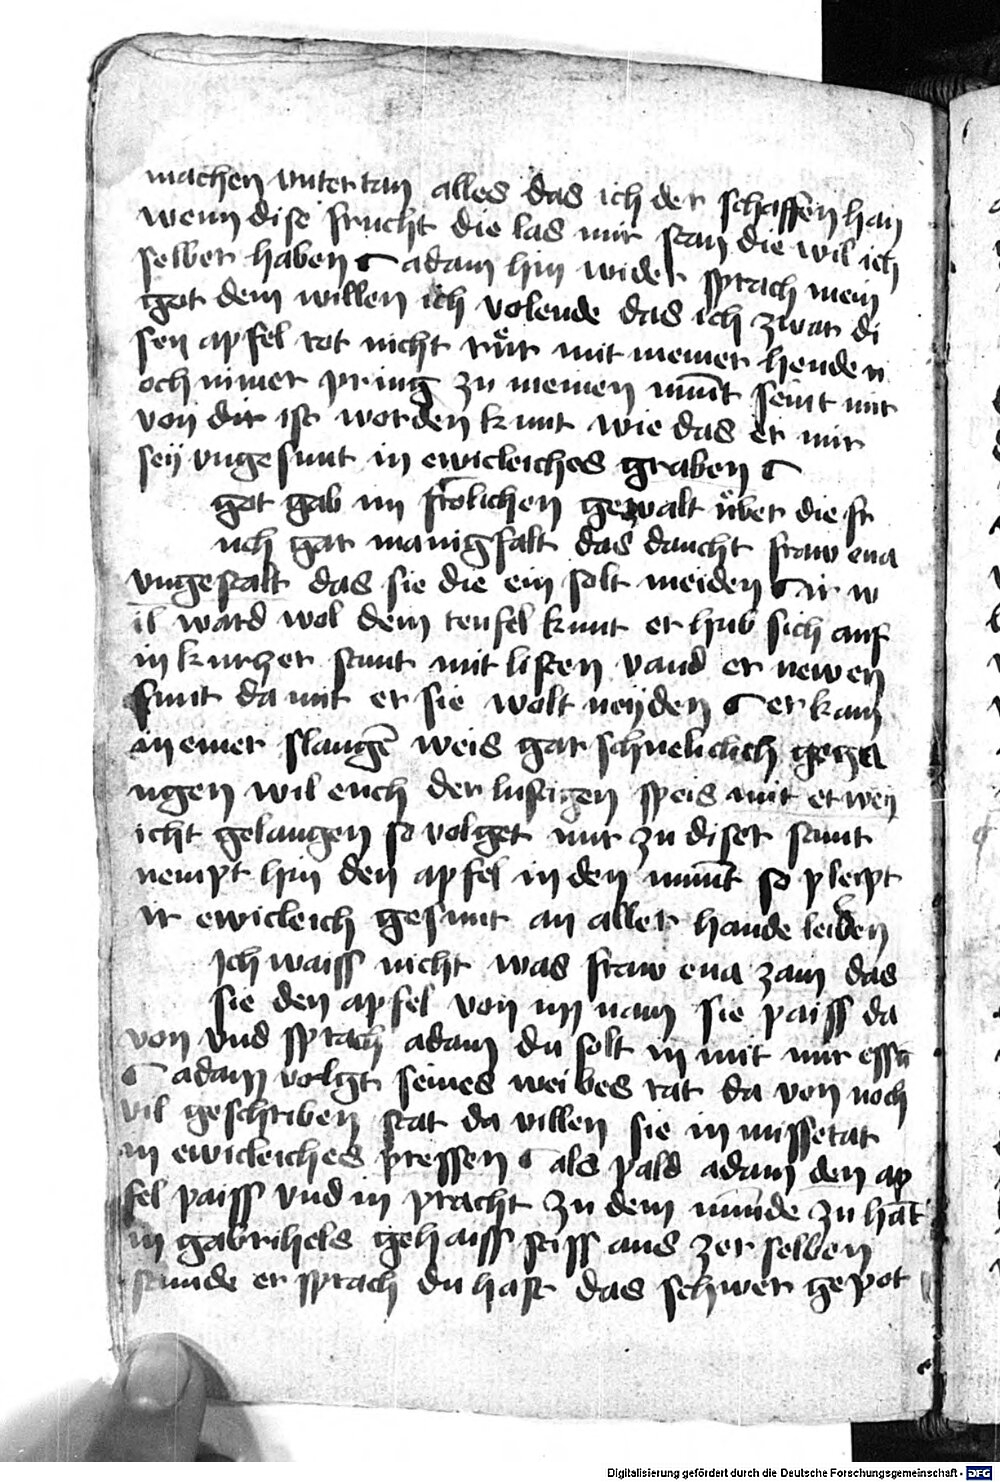 machen vntertan alles das ich der schaffen han
wenn dise frucht die las mir stan die wil ich
selber haben adam hin wider sprach mein
got dem willen ich volende das ich zwar di
sen apfel rot nicht rür mit meiner henden
och nimer pring zu meinen munt seint mir
von dir ist worden kunt wie das er mir
sey vngesunt in ewicleiches graben
got gab im frolichen gewalt über die fr
uch gar manigfalt das daucht fraw eua
vngestalt das sie die ein solt meiden ir w
il ward wol dem teufel kunt er hub sich auf
in kurczer stunt mit listen vand er newen
funt da mit er sie wolt neyden er kam
in einer slangen weis gar schneliclich gega
ngen wil euch der lustigen speis mit et wey
icht gelangen so volget mir zu diser stunt
nempt hin den apfel in den munt so pleipt
ir ewicleich gesunt an aller hande leiden
Ich waiss nicht was fraw eua zam das
sie den apfel von im nam sie paiss da
von vnd sprach adam du solt in mit mir essen
adam volgt seines weibes rat da von noch
vil geschriben stat da villen sie in missetat
in ewicleiches pressen als pald adam den ap
fel paiss vnd in pracht zu dem munde zu hant
in gabrihels gehaiss stiss aus zer selben
stunde er sprach du hast das schwer gepot
Digitalisierung gefördert durch die Deutsche Forschungsgemeinschaft - DFG